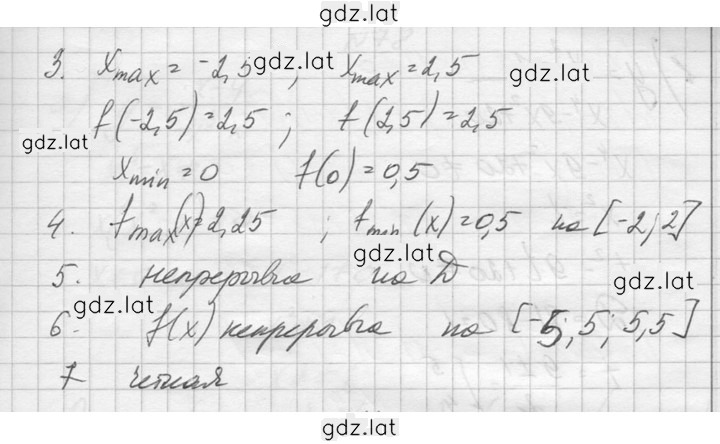 gdz.lat
3. x max = -2,5 ; x max = 2,5
gdz.lat
gdz.lat
f(-2,5) = 2,5 ; f(2,5) = 2,5
gdz.lat
x min = 0 f(0) = 0,5
4. f max (x) = 2,25 ; f min (x) = 0,5 на [-2; 2]
gdz.lat
5. непрерывна на D
gdz.lat
gdz.lat
6. f(x) непрерывна на [-5,5; 5,5]
7 четная
gdz.lat